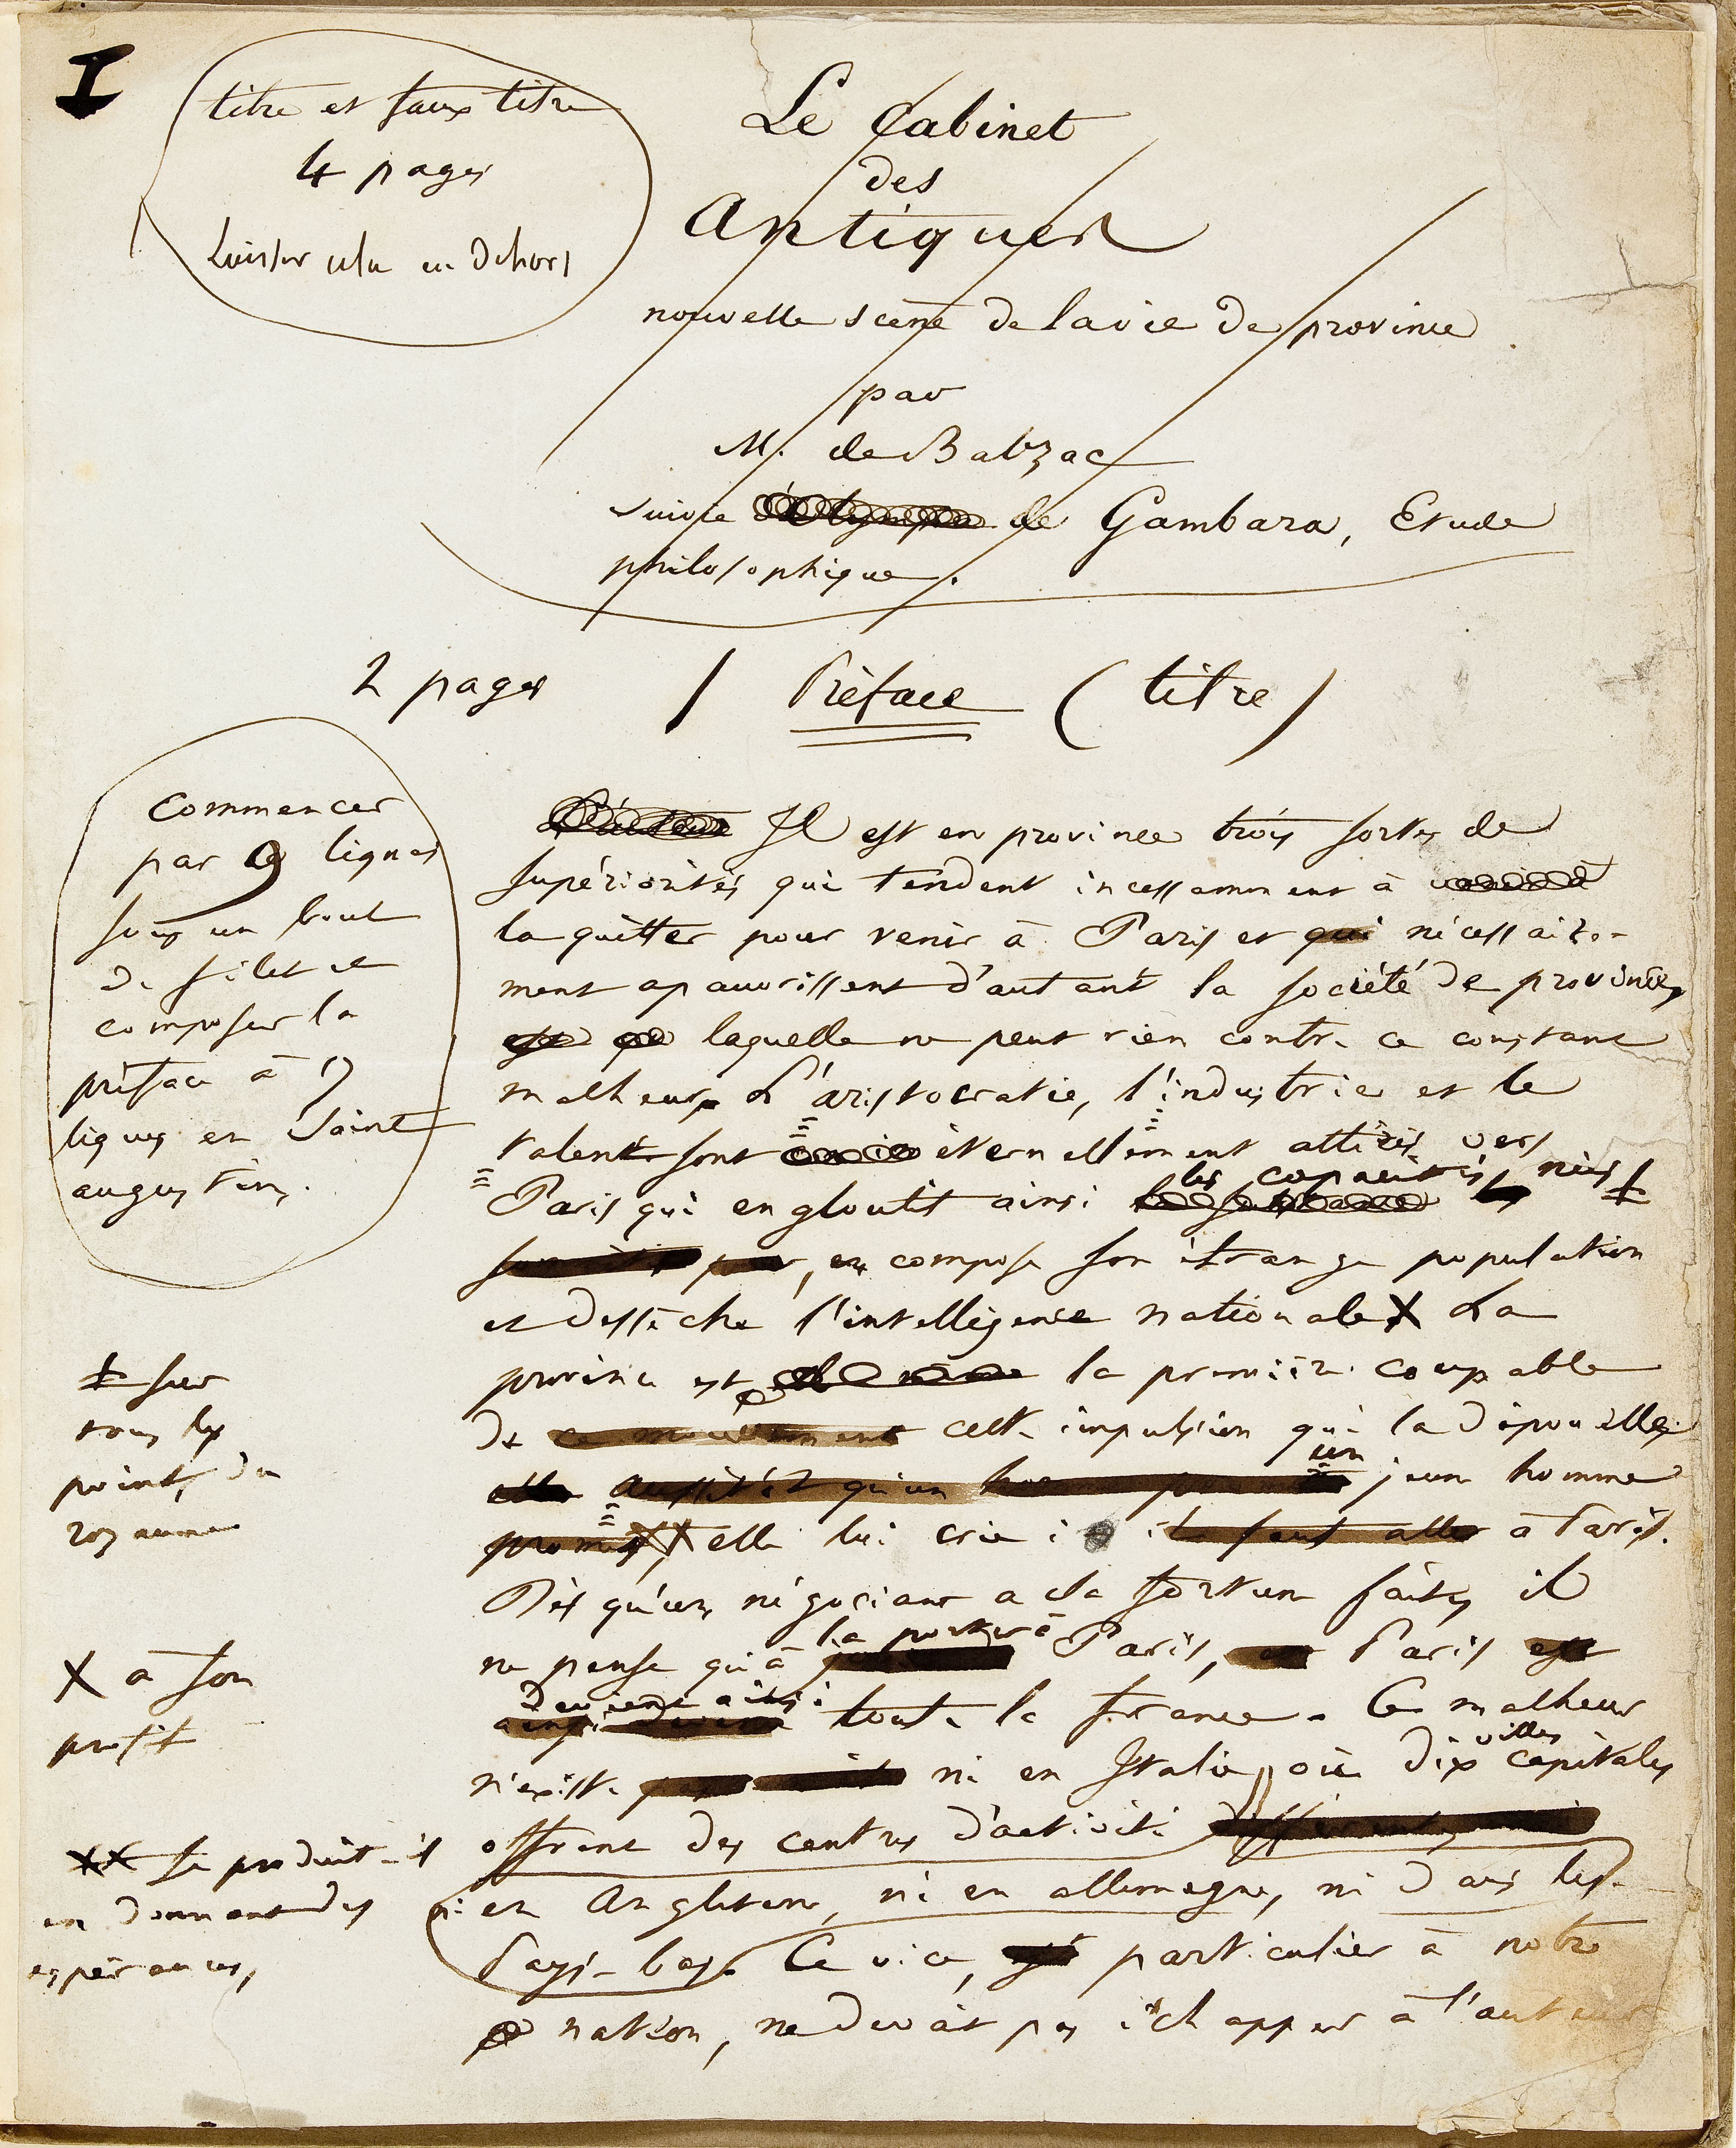 I
titre et faux titre
4 pages
Laisser cela en dehors
Le Cabinet
des
Antiques
nouvelle scène de la vie de province
par
M. de Balzac
suivie de Gambara, Etude
philosophique.
2 pages / Préface (titre)
Commencer
par 9 lignes
sous un bout
de filet et
composer la
préface à 17
lignes en Saint
augustin.
Il est en province trois sortes de
supériorités qui tendent incessamment à
la quitter pour venir à Paris et qui nécessaire-
ment apauvrissent d'autant la société de province,
laquelle ne peut rien contre ce constant
malheur L'aristocratie, l'industrie et le
talent sont éternellement attirés vers
Paris qui engloutit ainsi les capacités nées ‡
en compose son étrange population
et dessèche l'intelligence nationale X La
province est la première coupable
de cette impulsion qui la dépouille.
aussitôt qu'un un jeune homme
promet, elle lui crie : il faut aller à Paris.
Dès qu'un négociant a sa fortune faite, il
ne pense qu'à la porter à Paris, Paris est
devient ainsi toute la france. Ce malheur
n'existe ni en Italie, où dix villes capitales
offrent des centres d'activité
ni en Angleterre, ni en allemagne, ni dans les
Pays-bas. Ce vice, particulier à notre
nation, ne devait pas échapper à l'auteur
‡ sur
tous les
points du
royaume
X à son
profit
XX se produit-il
en donnant des
espérances,